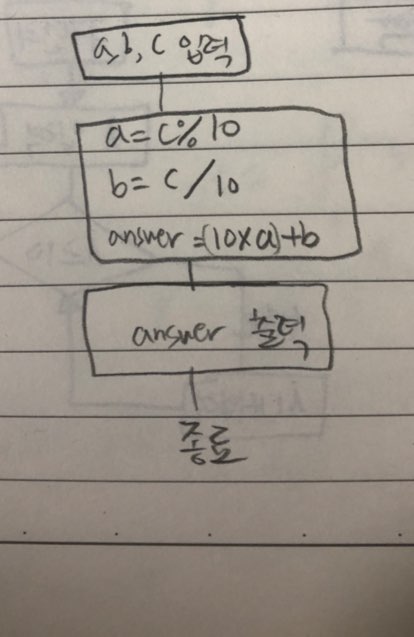 a,b, c 입력
a=c%10
b= c/10
answer=(10×a)+b
answer 출력
종료